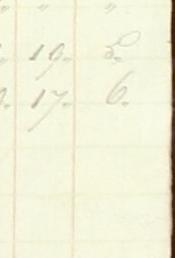 " "
19. 5.
17. 6.